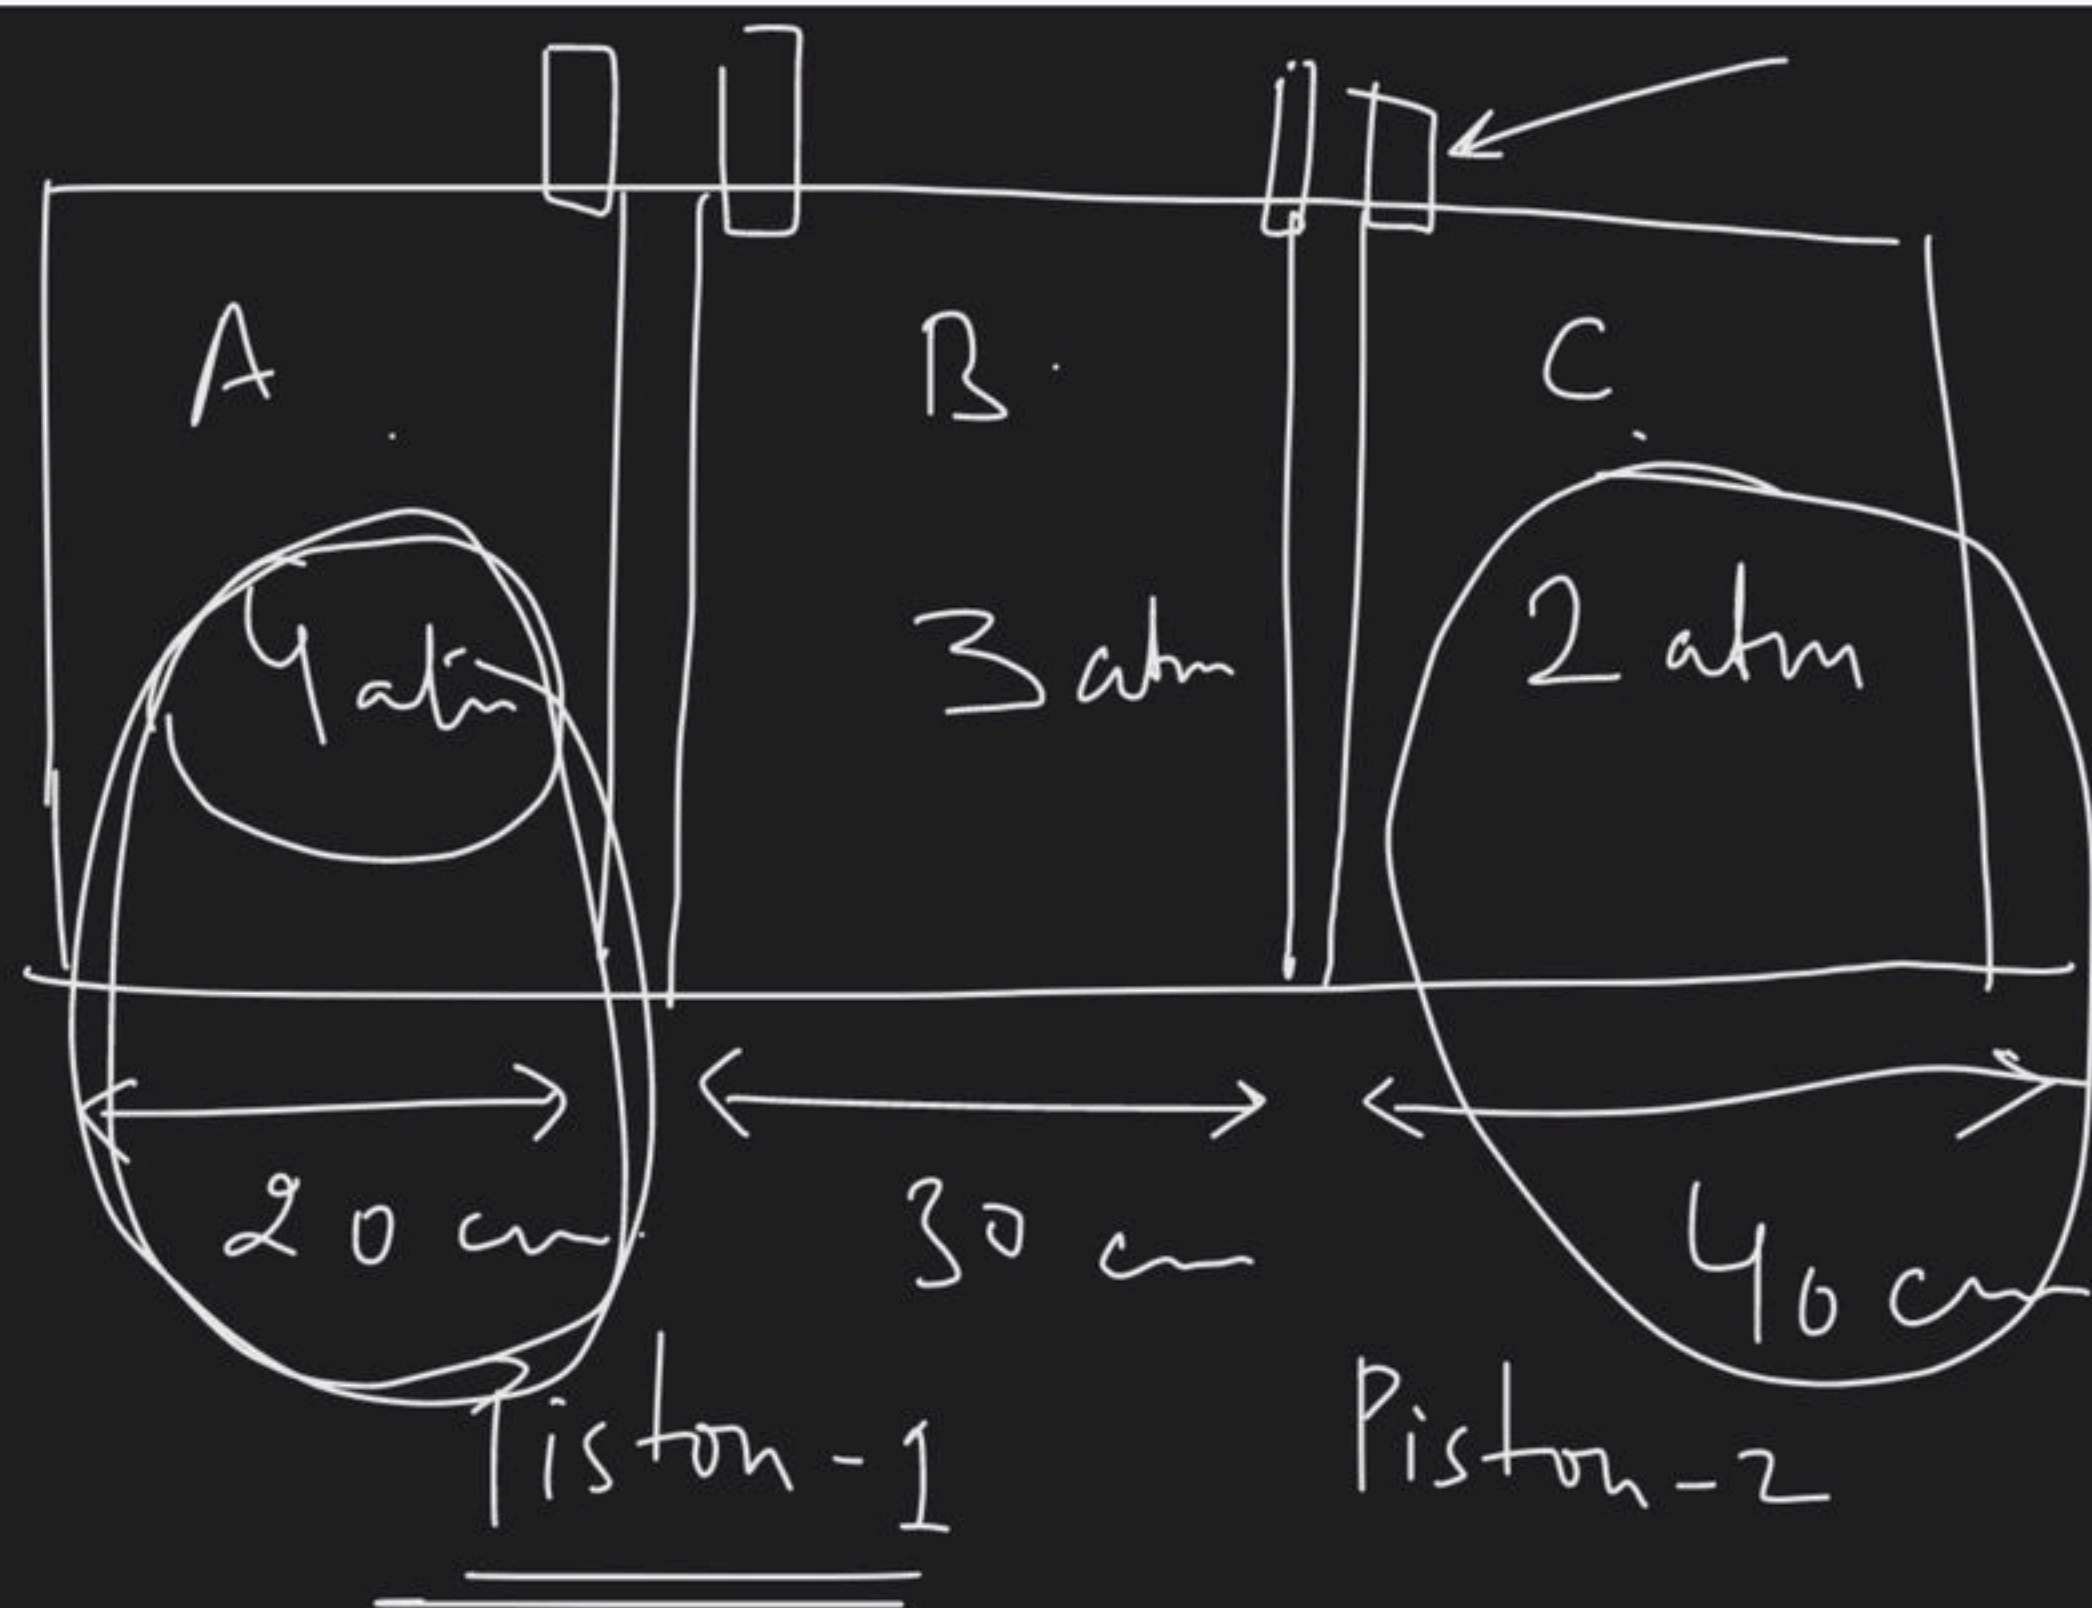 A B C
4 atm 3 atm 2 atm
20 cm 30 cm 40 cm
Piston-1 Piston-2